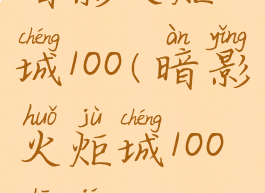 chéng àn yǐng
城100(暗影
huǒ jù chéng
火炬城100